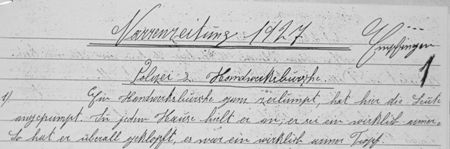 Narrenzeitung 1927
Empfingen
1
Polizei 2 Handwerksbursche
1) Ein Handwerksbursche ganz zerlumpt, hat hier die Leute
angepumpt. In jedem Hause hielt er an; er sei ein wirklich armer
So hat er überall geklopft, es war ein wirklich armer Tropf.